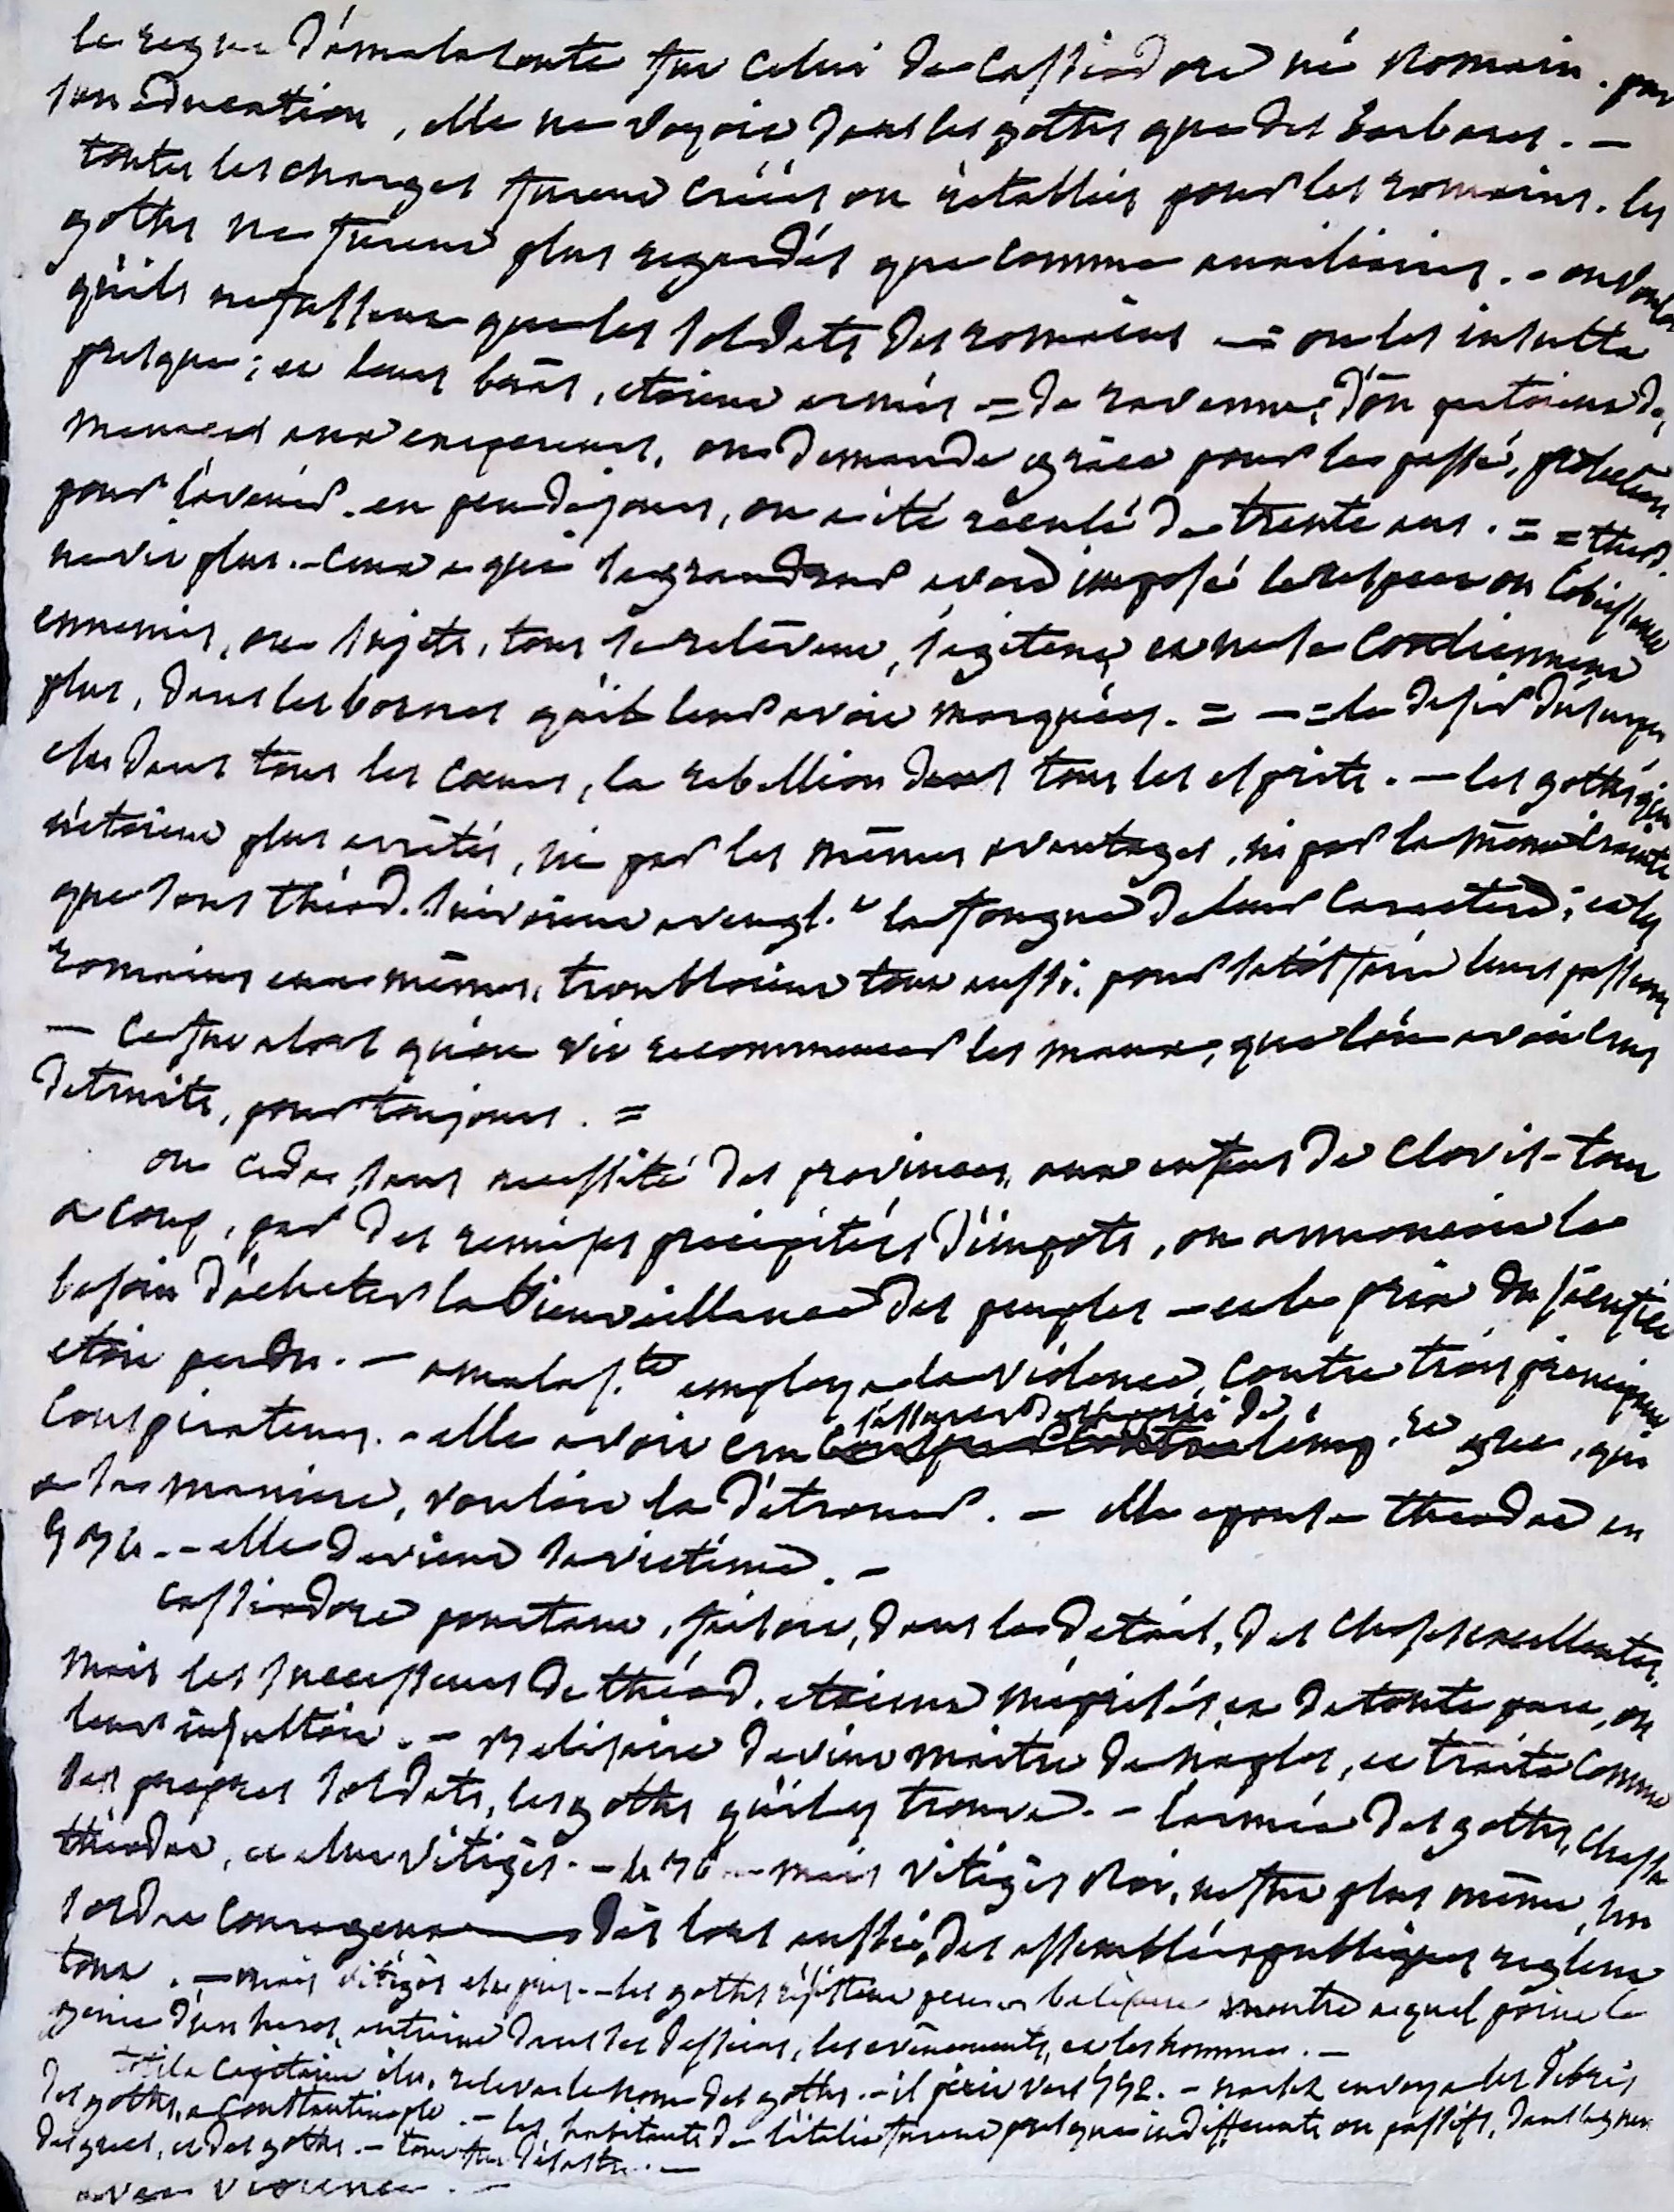 le regne d'amalasonte fut celui de Cassiodore né Romain. par
son education, elle ne voyoit dans les goths que des barbares. —
toutes les charges furent créées ou rétablies pour les romains. les
goths ne furent plus regardés que comme auxiliaires. - on voulut
qu'ils ne fussent que les soldats des romains — = on les insulta
presque; et leurs bras, etoient armés = de ravenne, d'où partoient des
menaces aux empereurs, on demande grâce pour le passé, protection
pour l'avenir. en peu de jours, on a été réculé de trente ans. = = théod.
ne vit plus. - ceux a qui ce grand roi avoit imposé le respect ou l'obeissance
ennemis, ou sujets, tous se relévent, s'agitent, et ne se contiennent
plus, dans les bornes qu'il leur avoit marquées. = — = le desir d'usurper
est dans tous les cœurs, la rebellion dans tous les esprits. — les goths qui
n'etoient plus arrêtés, ni par les mêmes avantages, ni par la même crainte
que sous théod. suivoient aveugl.t la fougue de leur caractere; et les
romains eux mêmes, troubloient tout aussi, pour satisfaire leurs passions
— ce fut alors qu'on vit recommencer les maux, que l'on avoit crus
detruits, pour toujours. =
on cede, sans necessité des provinces, aux enfans de Clovis - tout
a coup, par des remises precipitées d'impots, on annonçoit le
besoin d'acheter la bienveillance des peuples — et le prix du sacrifice
etoit perdu. — amalas.te employa la violence, contre trois principaux
conspirateurs. - elle avoit cru s'assurer de l'appui de l'emp.re grec, qui
a sa maniere, vouloit la détroner. — elle epouse theodat en
534. - elle devient sa victime. —
cassiodore pourtant, faisoit, dans le détail, des choses excellentes.
mais les successeurs de théod. etoient méprisés et de toute part, on
leur insultoit. — Belisaire devint maitre de naples, et traita comme
ses propres soldats, les goths qu'il y trouva. — l'armée des goths, chassa
théodat, et elut vitigès. — le 36 — mais vitigès Roi, ne fut plus même, un
soldat courageux — dès lors aussi, des assemblées publiques reglent
tout. — mais vitigès est pris. - les goths résistent peu et belisaire montre a quel point le
genie d'un heros, entraine dans ses desseins, les evénements, et les hommes. —
totila capitaine élu, releva le nom des goths. - il périt vers 552. — narsès envoya les débris
des goths, a Constantinople. — les habitants de l'italie furent presque indifferents ou passifs, dans la guerre
des grecs, et des goths. — tout fut désastre. —
avec violence. —